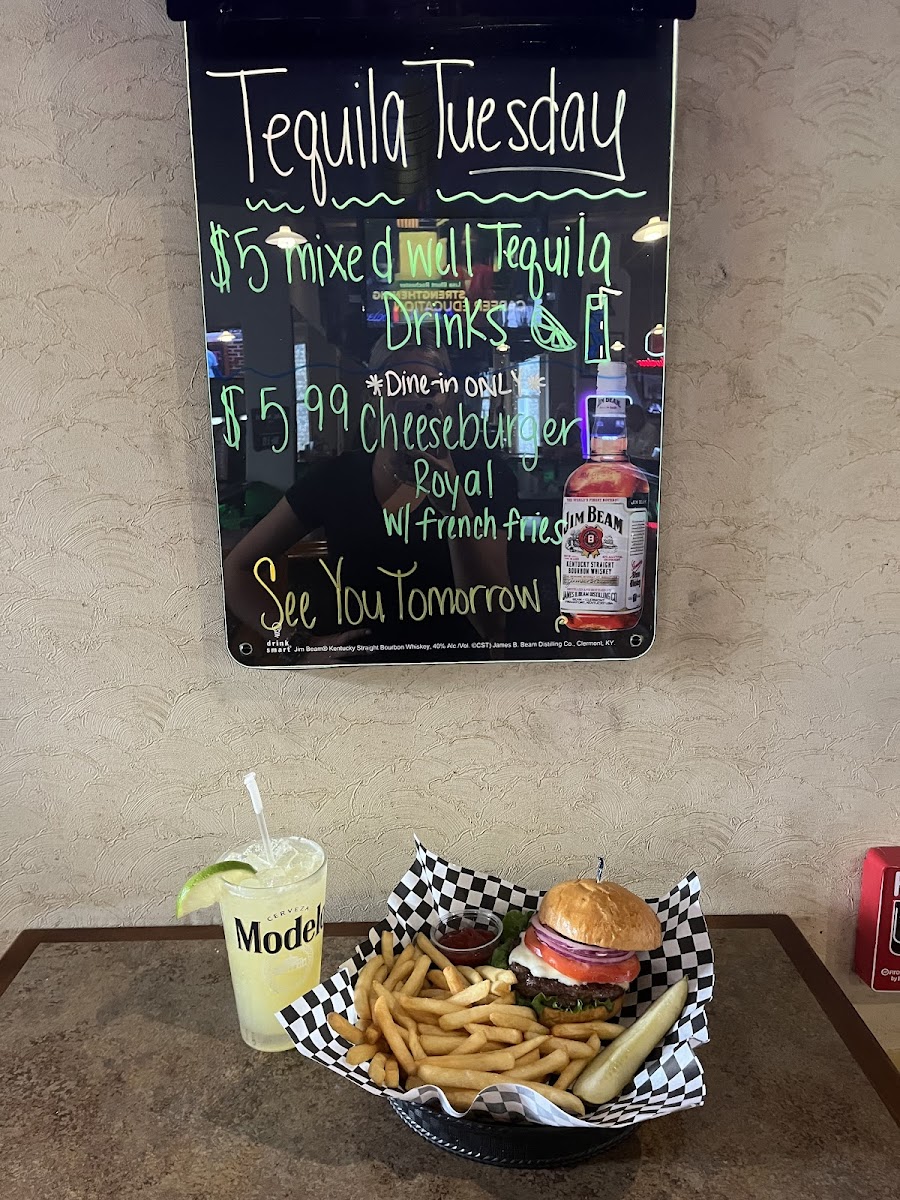 Tequila Tuesday
$5 mixed well Tequila
Drinks
*Dine-in ONLY*
$5.99 Cheeseburger
Royal
w/ french fries
See You Tomorrow !
JIM BEAM
KENTUCKY STRAIGHT
BOURBON WHISKEY
JAMES B. BEAM DISTILLING CO.
drink
smart
Jim Beam® Kentucky Straight Bourbon Whiskey, 40% Alc./Vol. ©CST) James B. Beam Distilling Co., Clermont, KY.
CERVEZA
Modelo